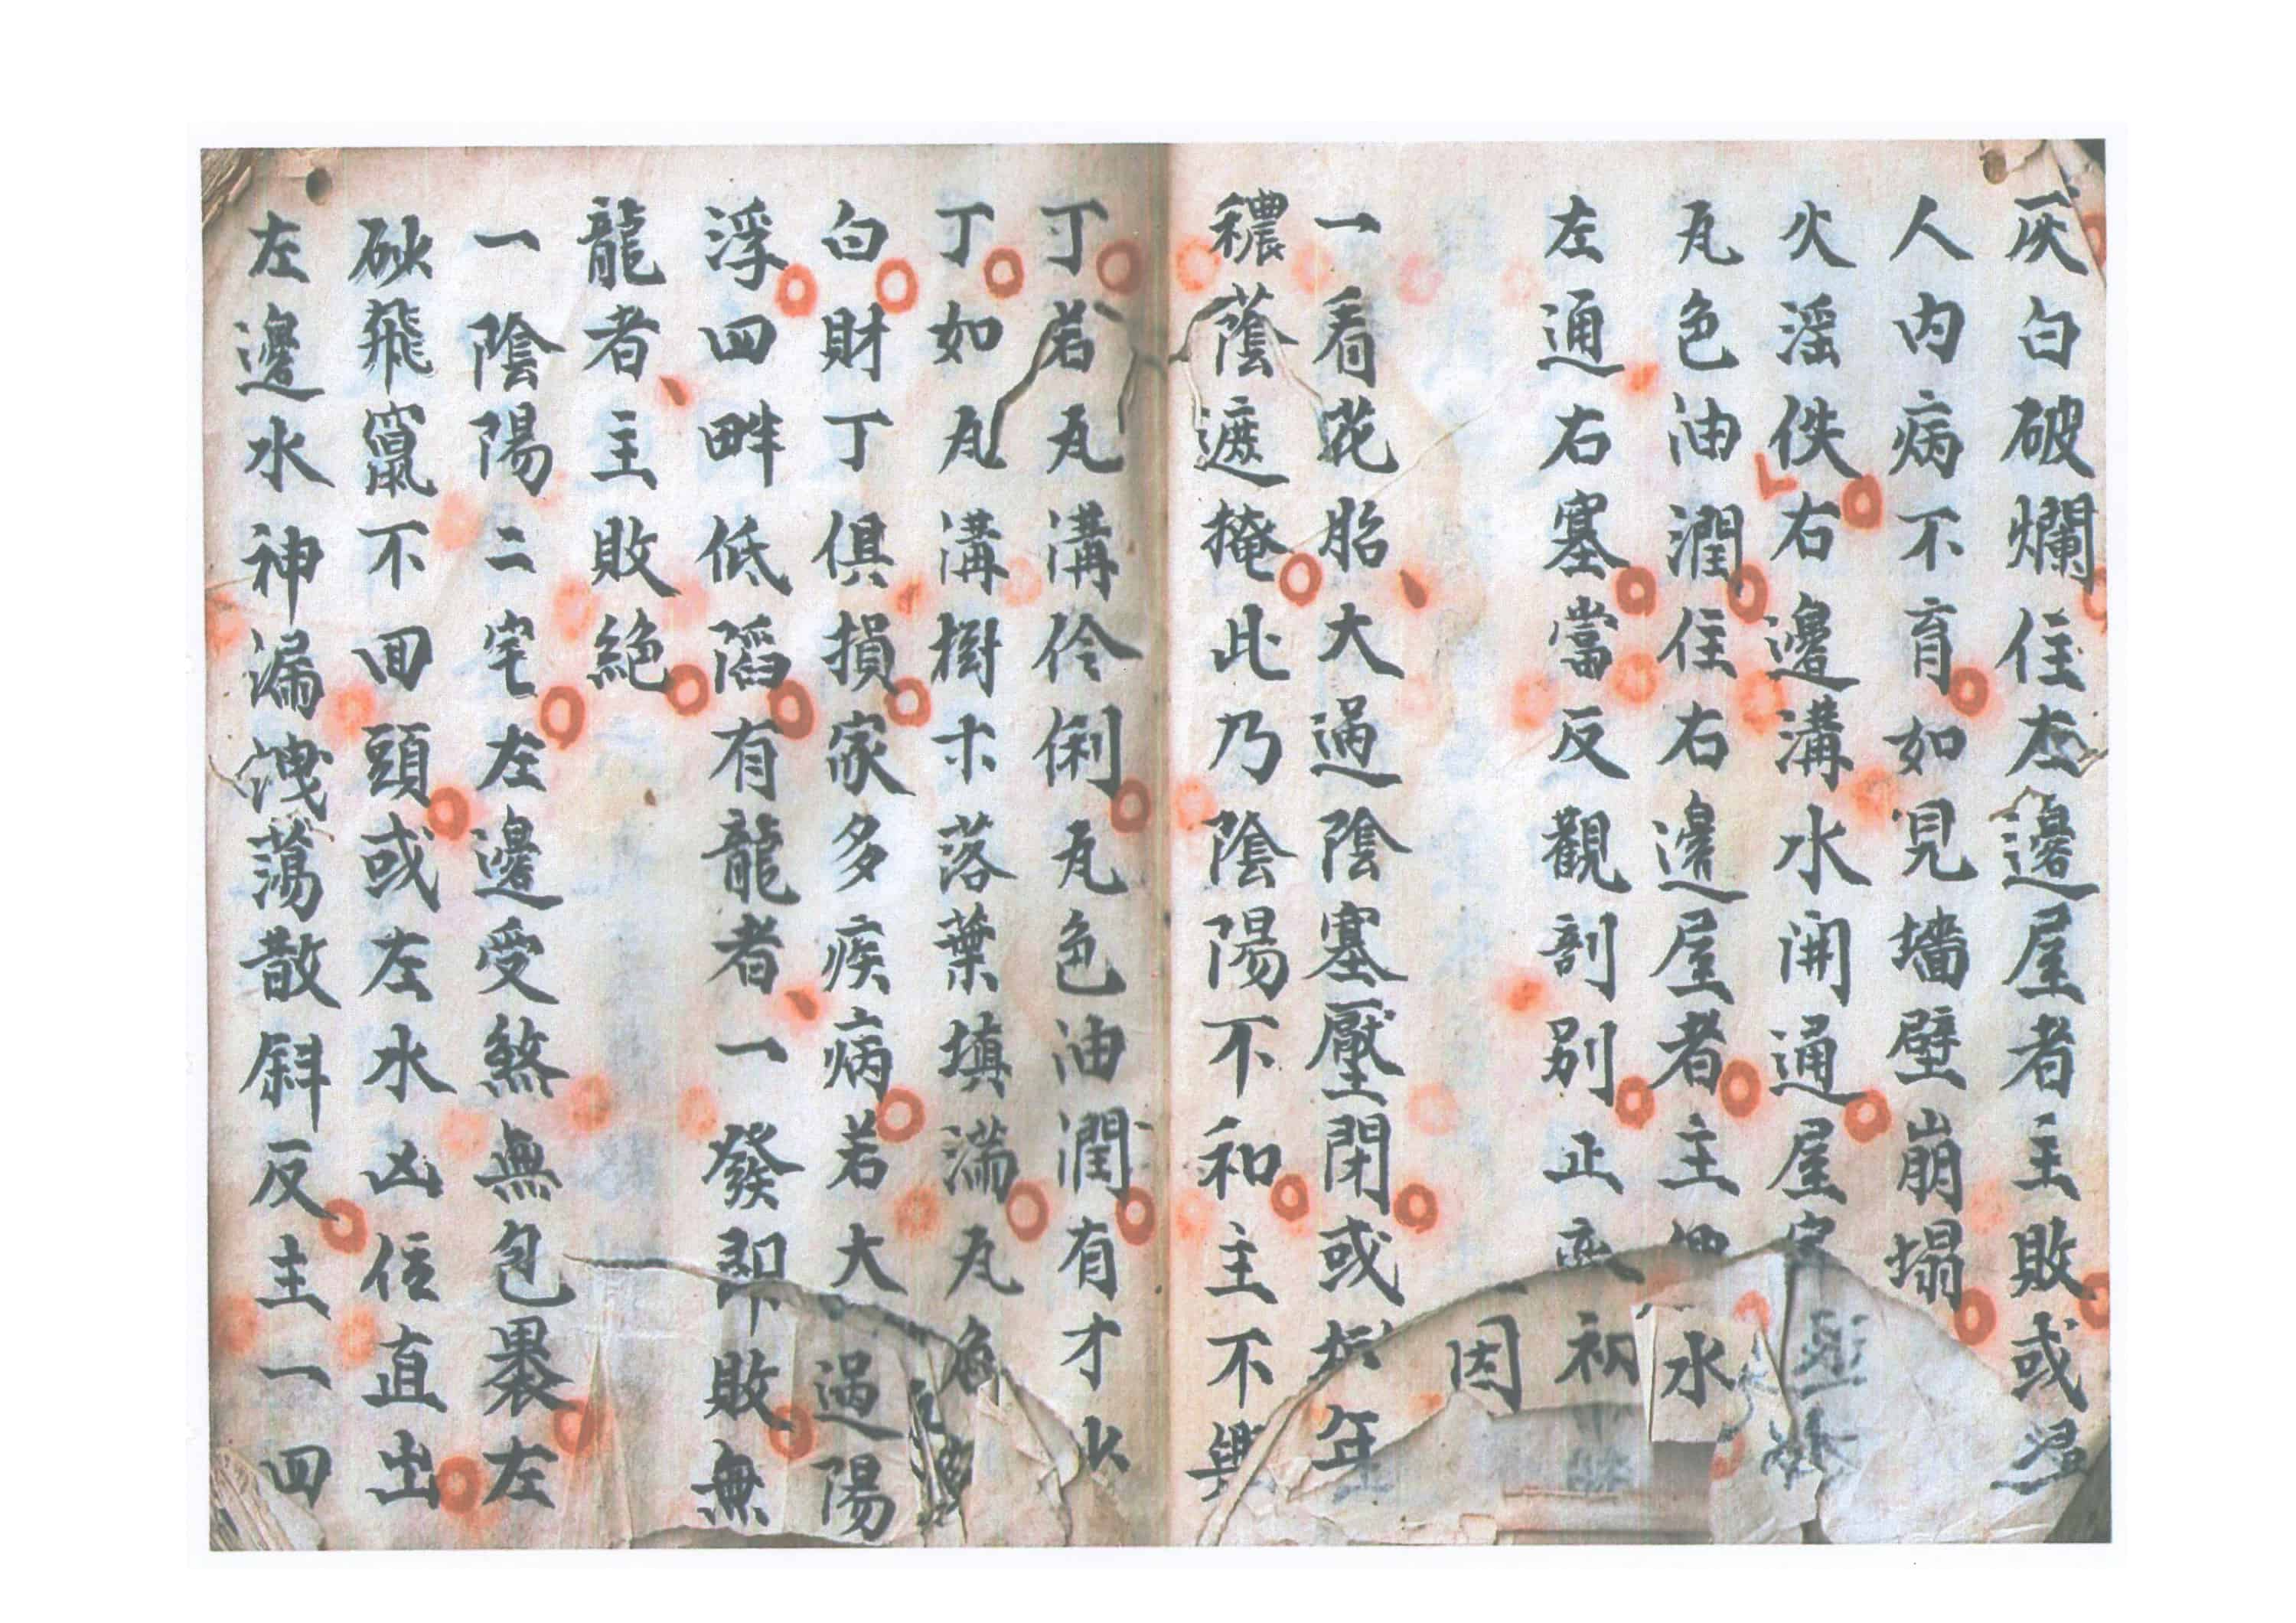 灰白破爛住左邊屋者主敗或
人內病不育如見墻壁崩塌
火滛佚右邊溝水開通屋
瓦色油潤住右邊屋者主 水
左通右塞當反觀剖別正 初
因
一看花胎大過陰塞壓閉或 年
穠蔭遮掩此乃陰陽不和主不
丁若瓦溝伶俐瓦色油潤有才
丁如瓦溝樹木落葉填滿瓦
白財丁俱損家多疾病若大過陽
浮四畔低滔有龍者一發即敗無
龍者主敗絕
一陰陽二宅左邊受煞無包裹左
砂飛竄不回頭或左水凶住直出
左邊水神漏洩蕩散斜反主一四